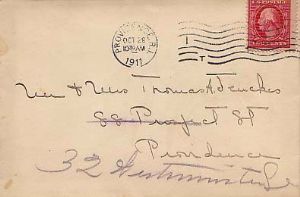 PROVIDENCE, R.I.
OCT 28
1911
1
T
Mr & Mrs Thomas A.
88 Prospect St
Providence
32 Westminster St